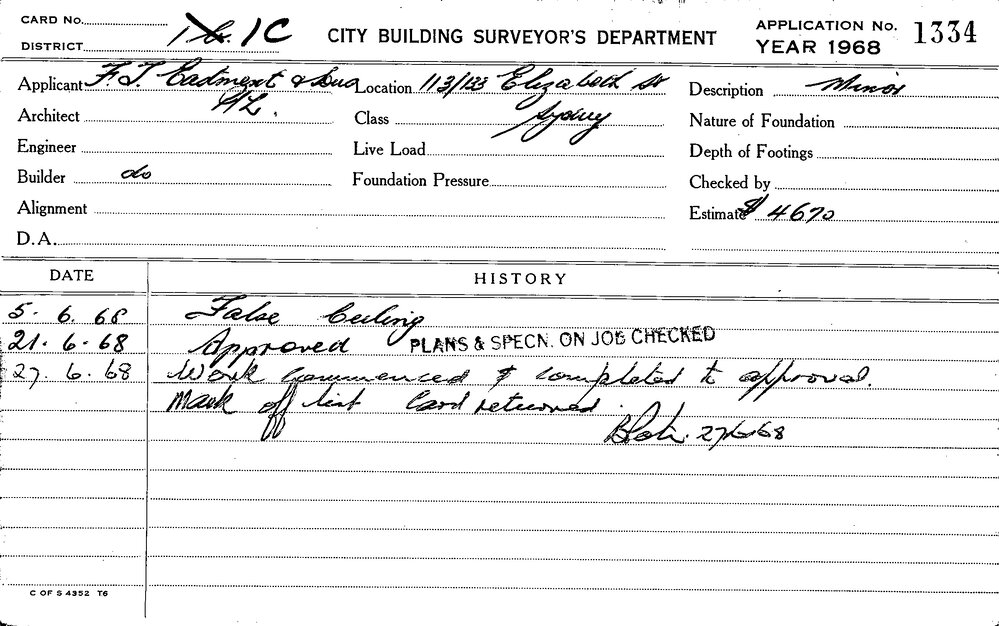 CARD No.
DISTRICT 1C
CITY BUILDING SURVEYOR'S DEPARTMENT
APPLICATION No. 1334
YEAR 1968
Applicant F. T. Eastment & Sons P/L.
Location 113/133 Elizabeth St Sydney
Description Minor
Architect
Class
Nature of Foundation
Engineer
Live Load
Depth of Footings
Builder do
Foundation Pressure
Checked by
Alignment
Estimate $ 4670
D.A.
DATE HISTORY
5. 6. 68 False Ceiling
21. 6. 68 Approved PLANS & SPECN. ON JOB CHECKED
27. 6. 68 Work commenced & completed to approval.
Mark off list Card returned.
27/6/68
C OF S 4352 T6